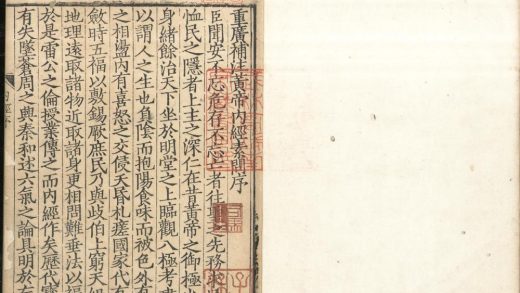 重廣補注黃帝內經素問序
臣聞安不忘危存不忘亡者往聖之先務求
恤民之隱者上主之深仁在昔黃帝之御極
身緒餘治天下坐於明堂之上臨觀八極考
以謂人之生也負陰而抱陽食味而被色外有
之相盪內有喜怒之交侵夭昏札瘥國家代有
斂時五福以敷錫厥庶民乃與歧伯上窮天紀
地理遠取諸物近取諸身更相問難垂法以福
於是雷公之倫授業傳之而內經作矣歷代寶
有失墜蒼周之興秦和述六氣之論具明於左